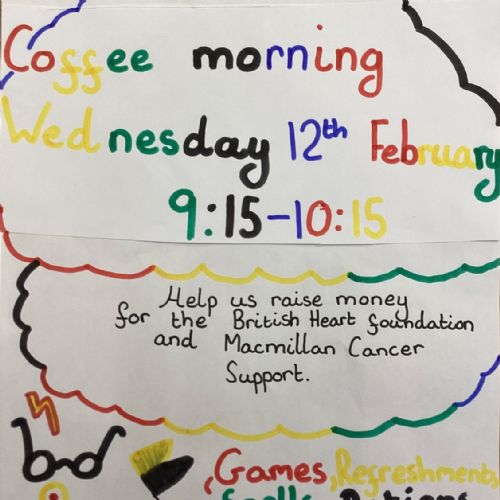 Coffee morning
Wednesday 12th February
9:15-10:15
Help us raise money
for the British Heart foundation
and Macmillan Cancer
Support.
,Games,Refreshments
Spells, Potions